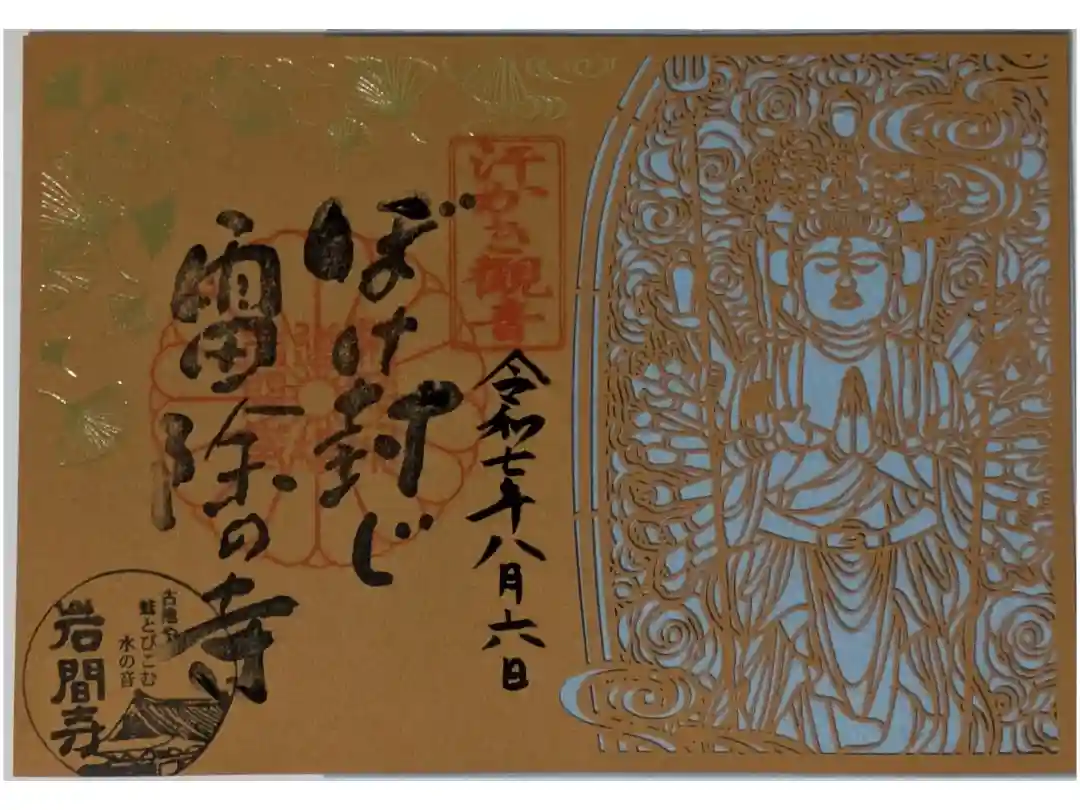 汗かき観音
令和七年八月六日
ぼけ封じ
雷除の寺
古池や
蛙とびこむ
水の音
岩間寺